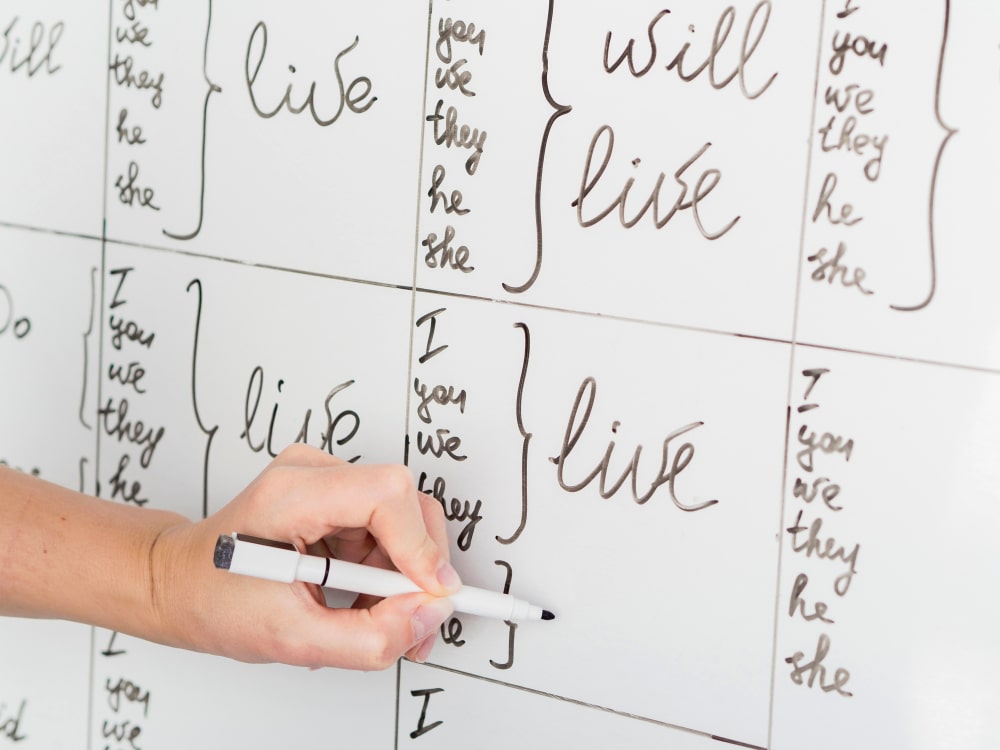 will
you
we
they
he
she
live
you
we
they
he
she
will
live
I
you
we
they
he
she
Do
I
you
we
they
he
live
I
you
we
they
live
I
you
we
they
he
she
I
you
we
I